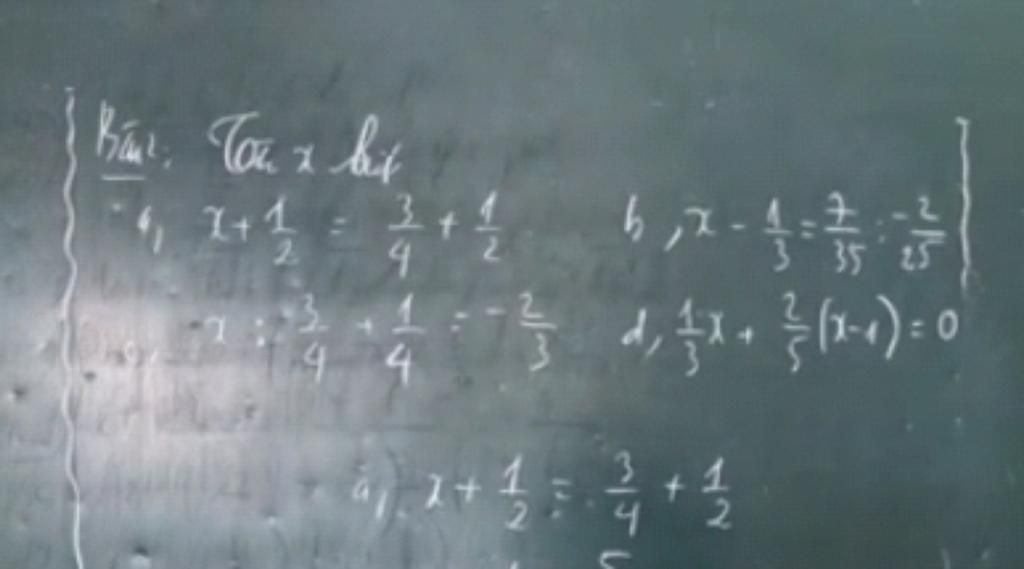 Bài 2: Tìm x biết
a, x + 1/2 = 3/4 + 1/2 b, x - 1/3 = 7/35 : -2/25
x : 3/4 + 1/4 = -2/3 d, 1/3 x + 2/5 (x-1) = 0
a, x + 1/2 = 3/4 + 1/2